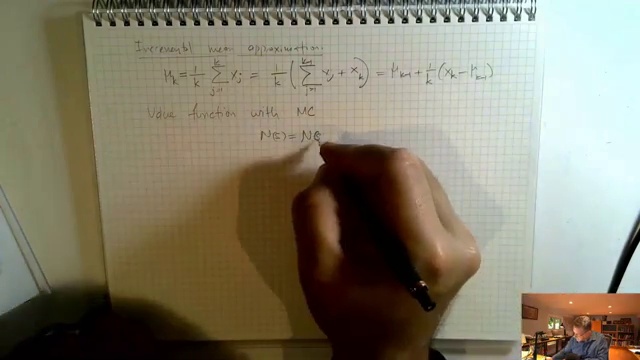 Incremental mean approximation.
μ_k = 1/k ∑_{j=1}^{k} x_j = 1/k ( ∑_{j=1}^{k-1} x_j + x_k ) = μ_{k-1} + 1/k ( x_k - μ_{k-1} )
Value function with MC
N(s) = N(s